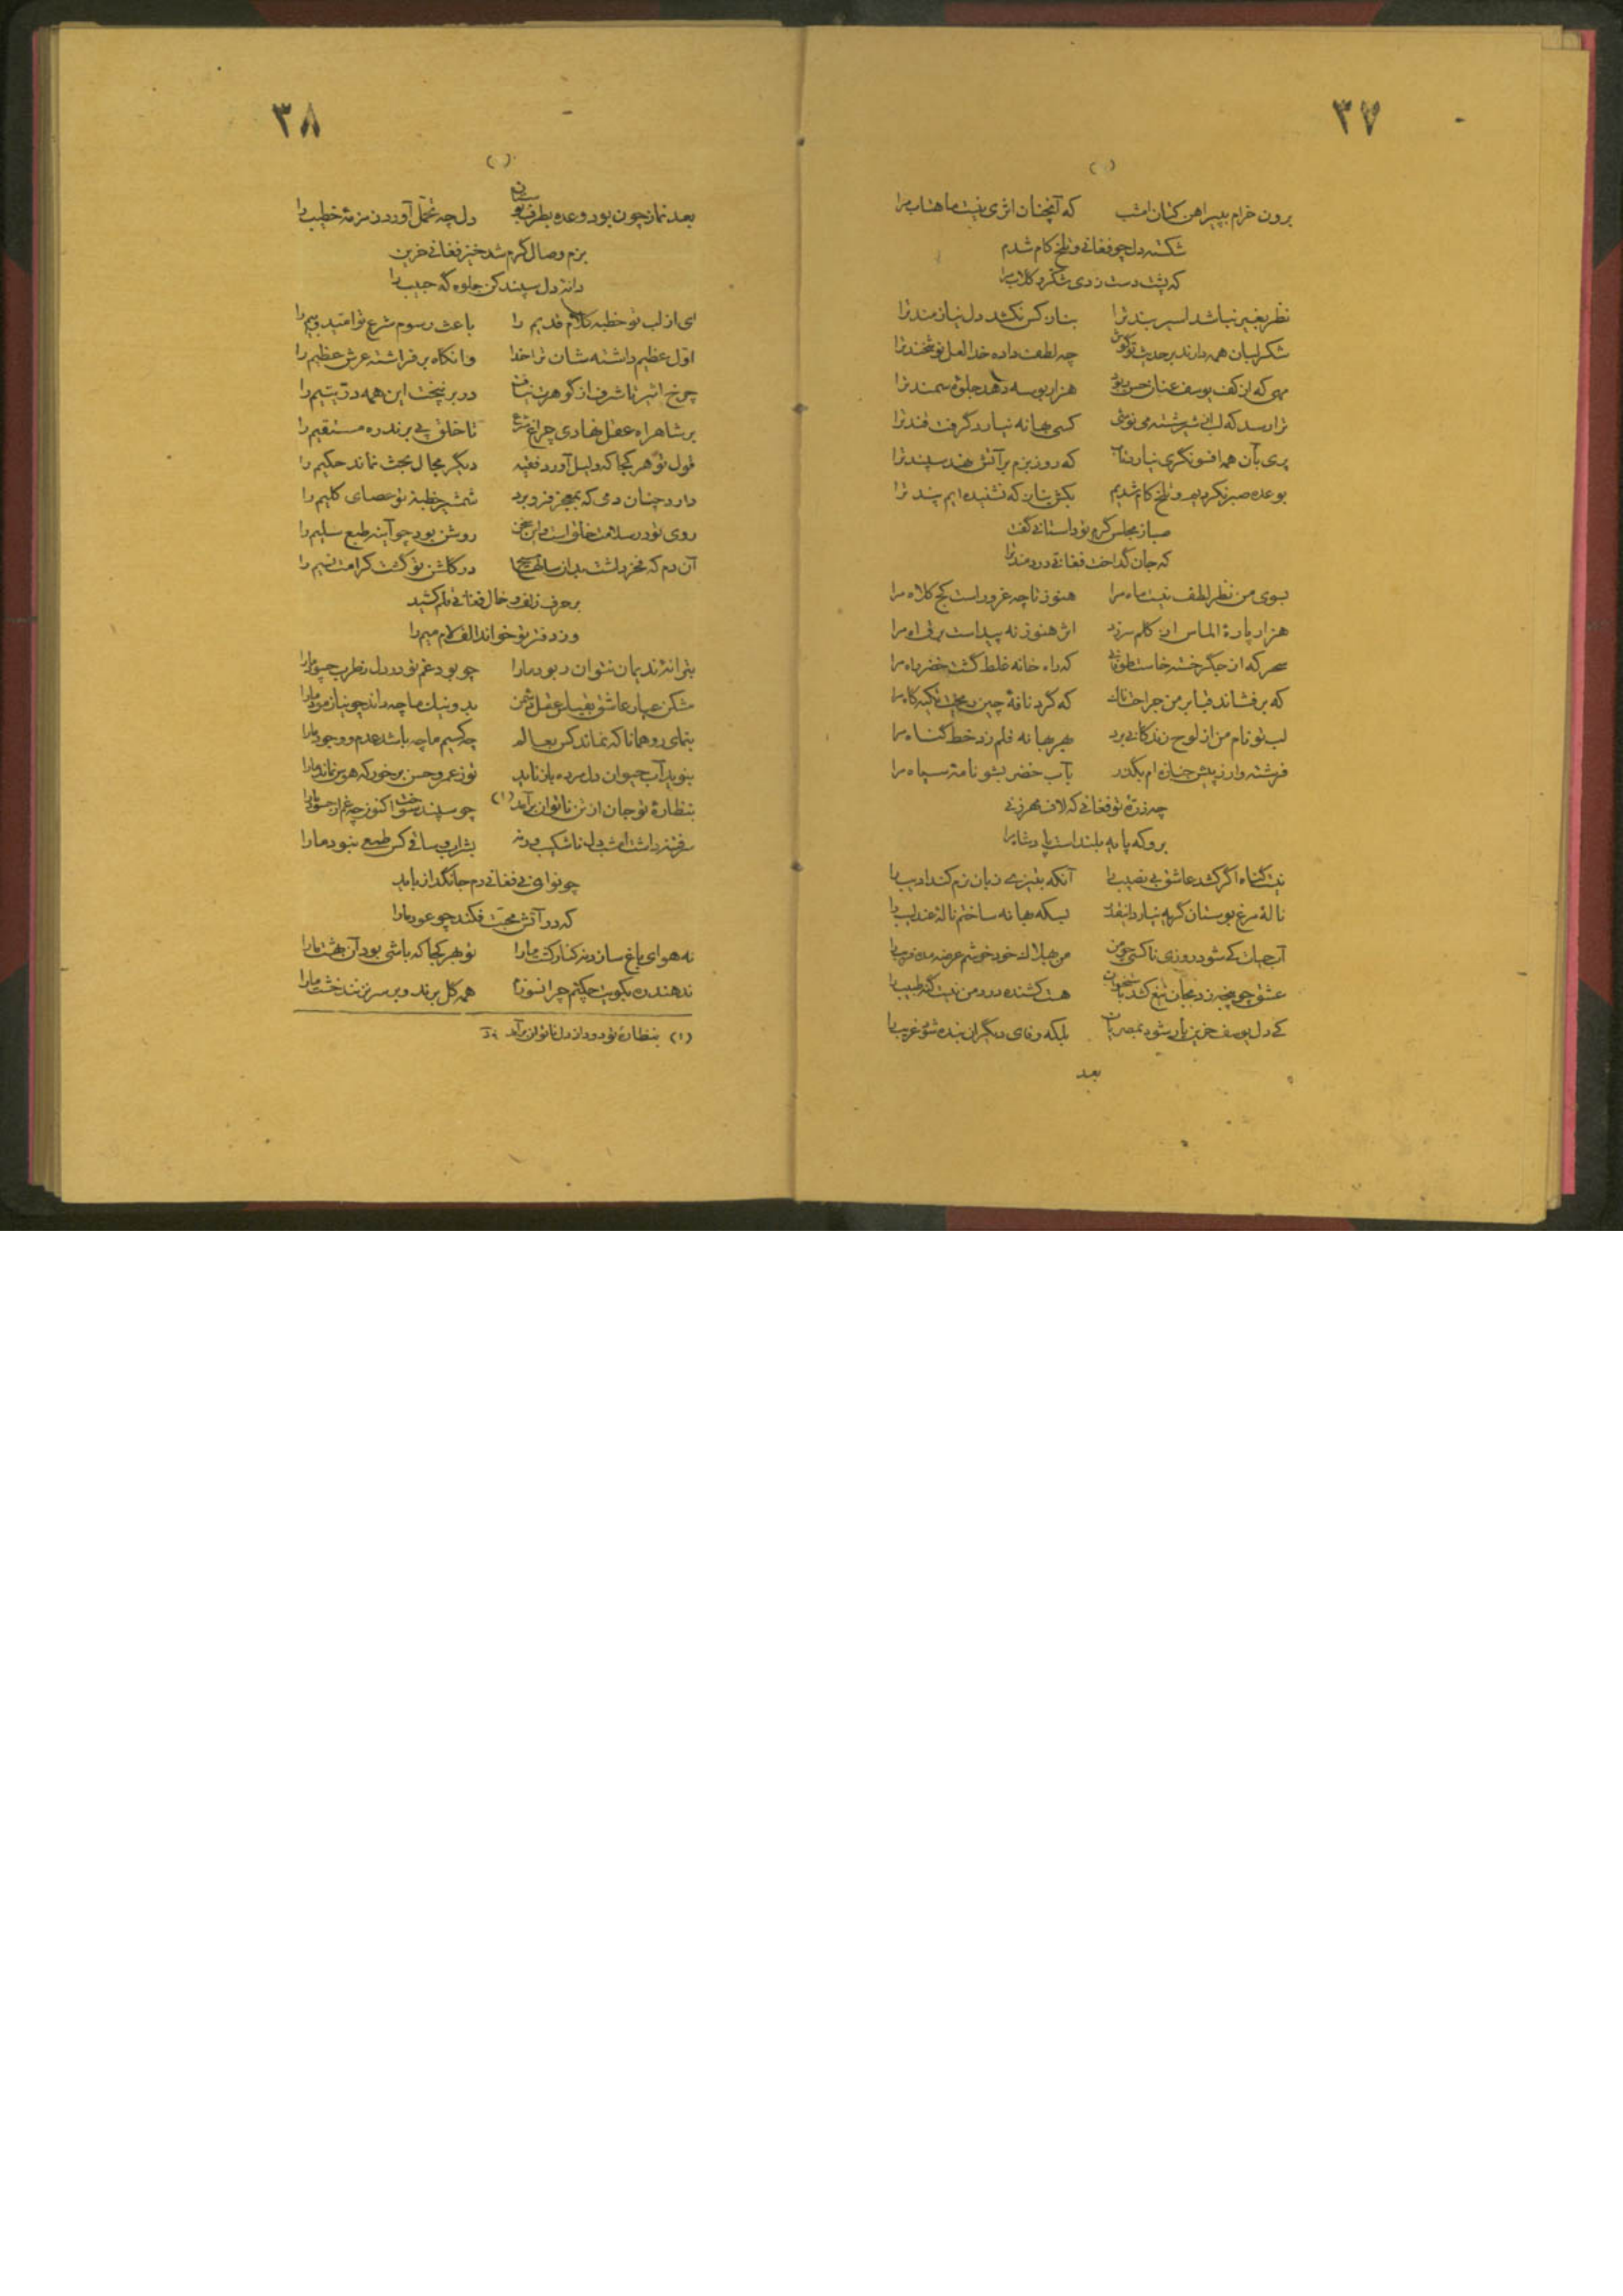 ۳۷
برون خرام بپیراهن کتان امشب که آنچنان اثری نیست ماهتاب مرا
شکسته دل چو فغانی و تلخ کام شدم
که پشت دست زدی شکر و کلاب مرا
نظر بغیر نباشد اسیر بند ترا بتان کس نکشد دل نیازمند ترا
شکر لبان همه دارند بر حدیث تو گوش چه لطف داده خدا لعل نوشخند ترا
مهی که از کف یوسف عنان حسن ربود هزار بوسه دهد جلوهٔ سمند ترا
ترا رسد که لب از شیر شسته می نوشی کسی بهانه نیارد گرفت قند ترا
پری بآن همه افسونگری نیارد تاب که روز بزم بر آتش نهند سپند ترا
بوعده صبر نکردیم و تلخ کام شدیم بکش بتان که نشنیده ایم پند ترا
صبا ز مجلس گرم تو داستانی گفت
که جان گداخت فغانی دردمند ترا
بسوی من نظر لطف نیست ماه مرا هنوز تا چه غرور است کج کلاه مرا
هزار پارهٔ الماس از کلم سر زد اثر هنوز نه پیداست برق آه مرا
سحر که از جگر خسته خاست طوفانی که راه خانه غلط گشت خضر راه مرا
که برفشاند قبا بر من جراحتناک که گرد نافهٔ چین ریخت تکیه گاه مرا
لب تو نام من از لوح زندگانی برد بهر بهانه قلم زد خط گناه مرا
فرشته وار ز پیش جنازه ام بگذر بآب خضر بشو نامهٔ سیاه مرا
چه ذرّهٔ تو فغانی که لاف مهر زنی
برو که پایه بلند است پادشاه مرا
نیست گناه اگر کشد عاشق بی نصیب را آنکه بتیز‌ی زبان نرم کند ادیب را
نالهٔ مرغ بوستان گر به نیارد اینقدر بسکه بهانه ساختم نالهٔ عندلیب را
آب حیات کی شود روزی ناکسی چو من من بهلاک خود خوشم عرضه مده رقیب را
عشق چو پنجه زد بجان تیغ کشد باستخوان هست کشنده درد من نیست گنه طبیب را
کی دل یوسف حزین باز شود بمصریان بلکه وفای دیگران بنده شوی غریب را
بعد
۳۸
بعد نماز چون بود وعده بطرف بوستان دل چه تحمّل آورد زمزمهٔ خطیب را
بزم وصال گرم شد خیز فغانی حزین
دانهٔ دل سپند کن جلوه گه حبیب را
ای از لب تو خطبه کلام قدیم را باعث رسوم شرع تو امّید و بیم را
اوّل عظیم داشته شان ترا خدا وانگاه برفراشته عرش عظیم را
چرخ اثیر تا شرف از گوهرت نیافت در بر نپخت این همه درّ یتیم را
بر شاهراه عقل نهادی چراغ شرع تا خلق پی برند ره مستقیم را
قول تو هر کجا که دلیل آورد فقیه دیگر مجال بحث نماند حکیم را
دارد چنان دمی که بمعجز فرو برد شمشیر خطبهٔ تو عصای کلیم را
روی تو در سلامت خلق است و این سخن روشن بود چو آینه طبع سلیم را
آن دم که فخر داشت بدان ساحت مسیح در گلشن تو گشت کرامت نسیم را
بر حرف زلف و خال فغانی قلم کشید
وز دفتر تو خواند الف لام میم را
بترانهٔ ندیمان نتوان ربود ما را چو بود غم تو در دل ز طرب چه سود ما را
مشکن عیار عاشق بقیاس عقل دشمن بد و نیک ما چه داند چو نیازمود ما را
بنمای رو همانا که نماند کس بعالم چه کسیم ما چه باشد عدم و وجود ما را
بنوید آب حیوان دل مرده باز ناید تو ز عمر و حسن برخور که هوس نماند ما را
بنظارهٔ تو جان از تن ناتوان برآید (۱) چو سپند سوخت اکنون چه غم از حسود ما را
سر فتنه داشت امشب دل ناشکیب ورنه بشراب و ساقی کس طمعی نبود ما را
چو نوای نی فغانی دم جانگداز باید
که در آتش محبّت فکند چو عود ما را
نه هوای باغ سازد نه کنار کشت ما را تو بهر کجا که باشی بود آن بهشت ما را
ندهند ره بکویت چکنم چرا نسوزم همه گل برند و بر سر نزنند خشت ما را
(۱) بنظارهٔ تو دود از دل ناتوان برآمد